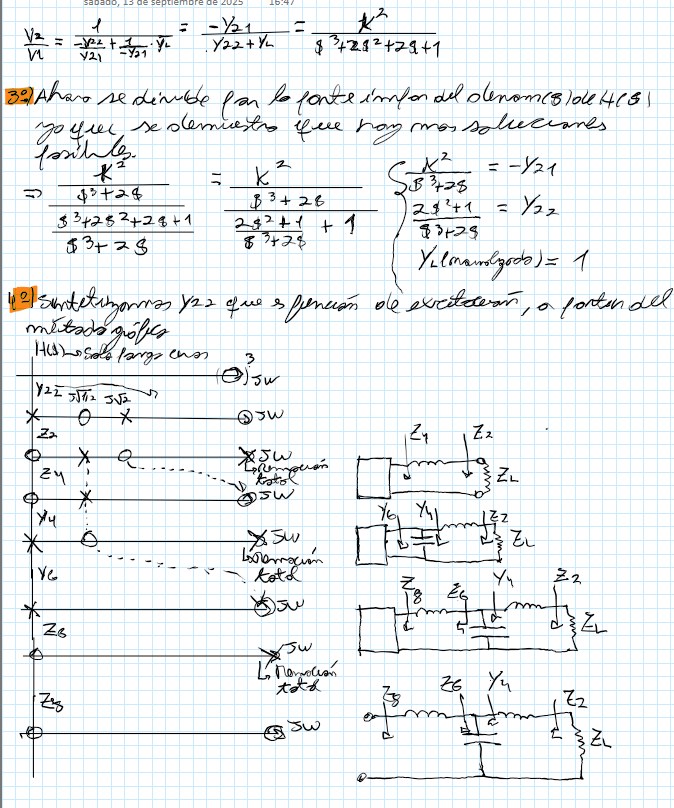 sábado, 13 de septiembre de 2025 16:47
V2/V1 = 1/(-Y22/Y21 + 1/-Y21 · YL) = -Y21/(Y22+YL) = K²/($³+2$²+2$+1)
3º) Ahora se divide por la parte impar del denom($) de H($)
ya que, se demuestra que hay mas soluciones
posibles.
⇒ (K²/($³+2$))/(($³+2$²+2$+1)/($³+2$)) = (K²/($³+2$))/((2$²+1)/($³+2$) + 1)
K²/($³+2$) = -Y21
(2$²+1)/($³+2$) = Y22
YL(normalizado) = 1
4º) Sintetizamos Y22 que es función de excitación, a partir del
método gráfico
H($) → Solo tengo ceros
3
JW
Y22 J√1/2 J√2
JW
Z2
JW
Remoción
total
Z4
JW
Y4
JW
Remoción
total
Y6
JW
Z6
JW
Remoción
total
Z8
JW
Z4 Z2
ZL
Y6 Y4 Z2
ZL
Z8 Z6 Y4 Z2
ZL
Z8 Z6 Y4 Z2
ZL